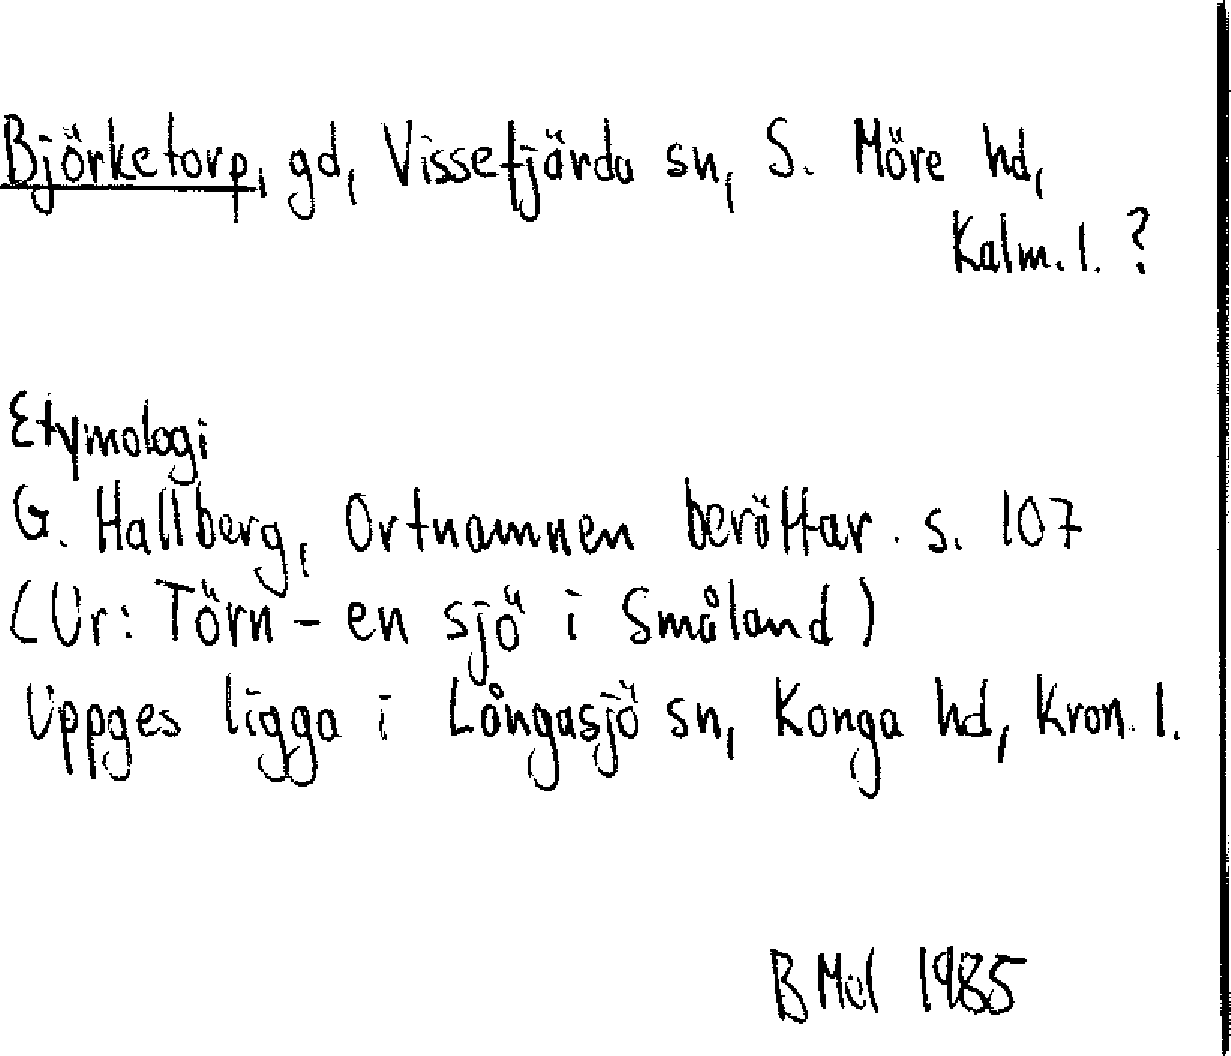 Björketorp, gd, Vissefjärda sn, S. Möre hd,
Kalm. l. ?
Etymologi
G. Hallberg, Ortnamnen berättar. s. 107
(Ur: Törn - en sjö i Småland)
Uppges ligga i Långasjö sn, Konga hd, Kron. l.
B Mol 1985